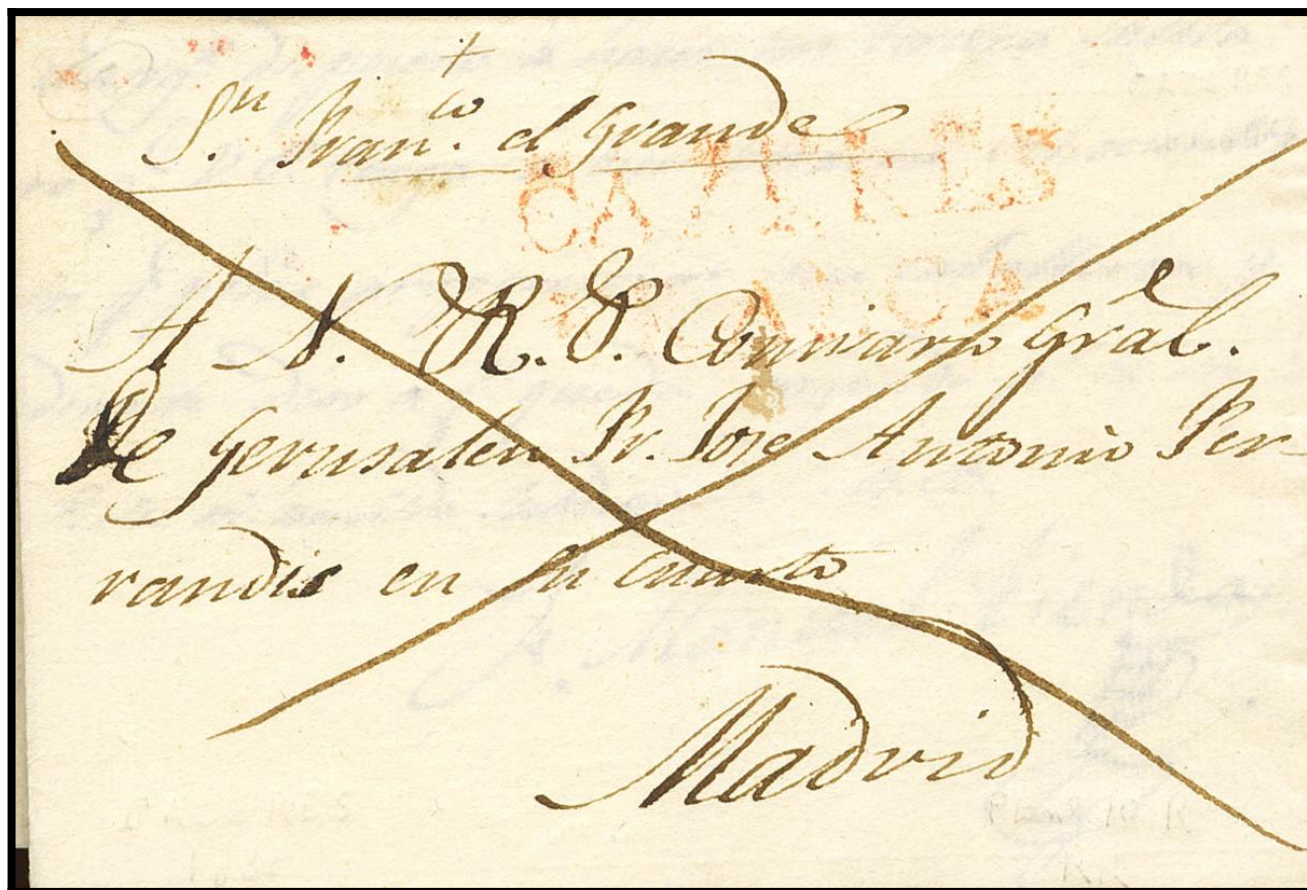 +
Sn. Franco. el Grande
CANARIAS
FRANCA
A N. R. P. Comisario Gral.
De Gerusalen Fr. Jose Antonio Fer-
randis en su cuarto
Madrid